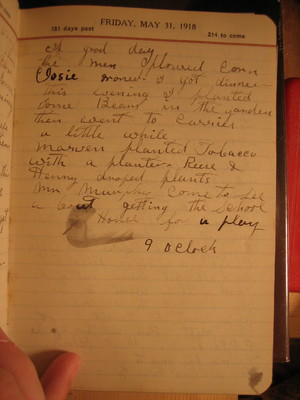 FRIDAY, MAY 31, 1918
151 days past
214 to come
A good day
the men Plowed Corn
Josie moned I got dinner
this evening I planted
some Beans in the garden
then went to Carries
a little while
Marven planted Tobacco
with a planter Reece &
Henny droped plants
Mr come to see
a bout getting the School
House for a play
9 oclock